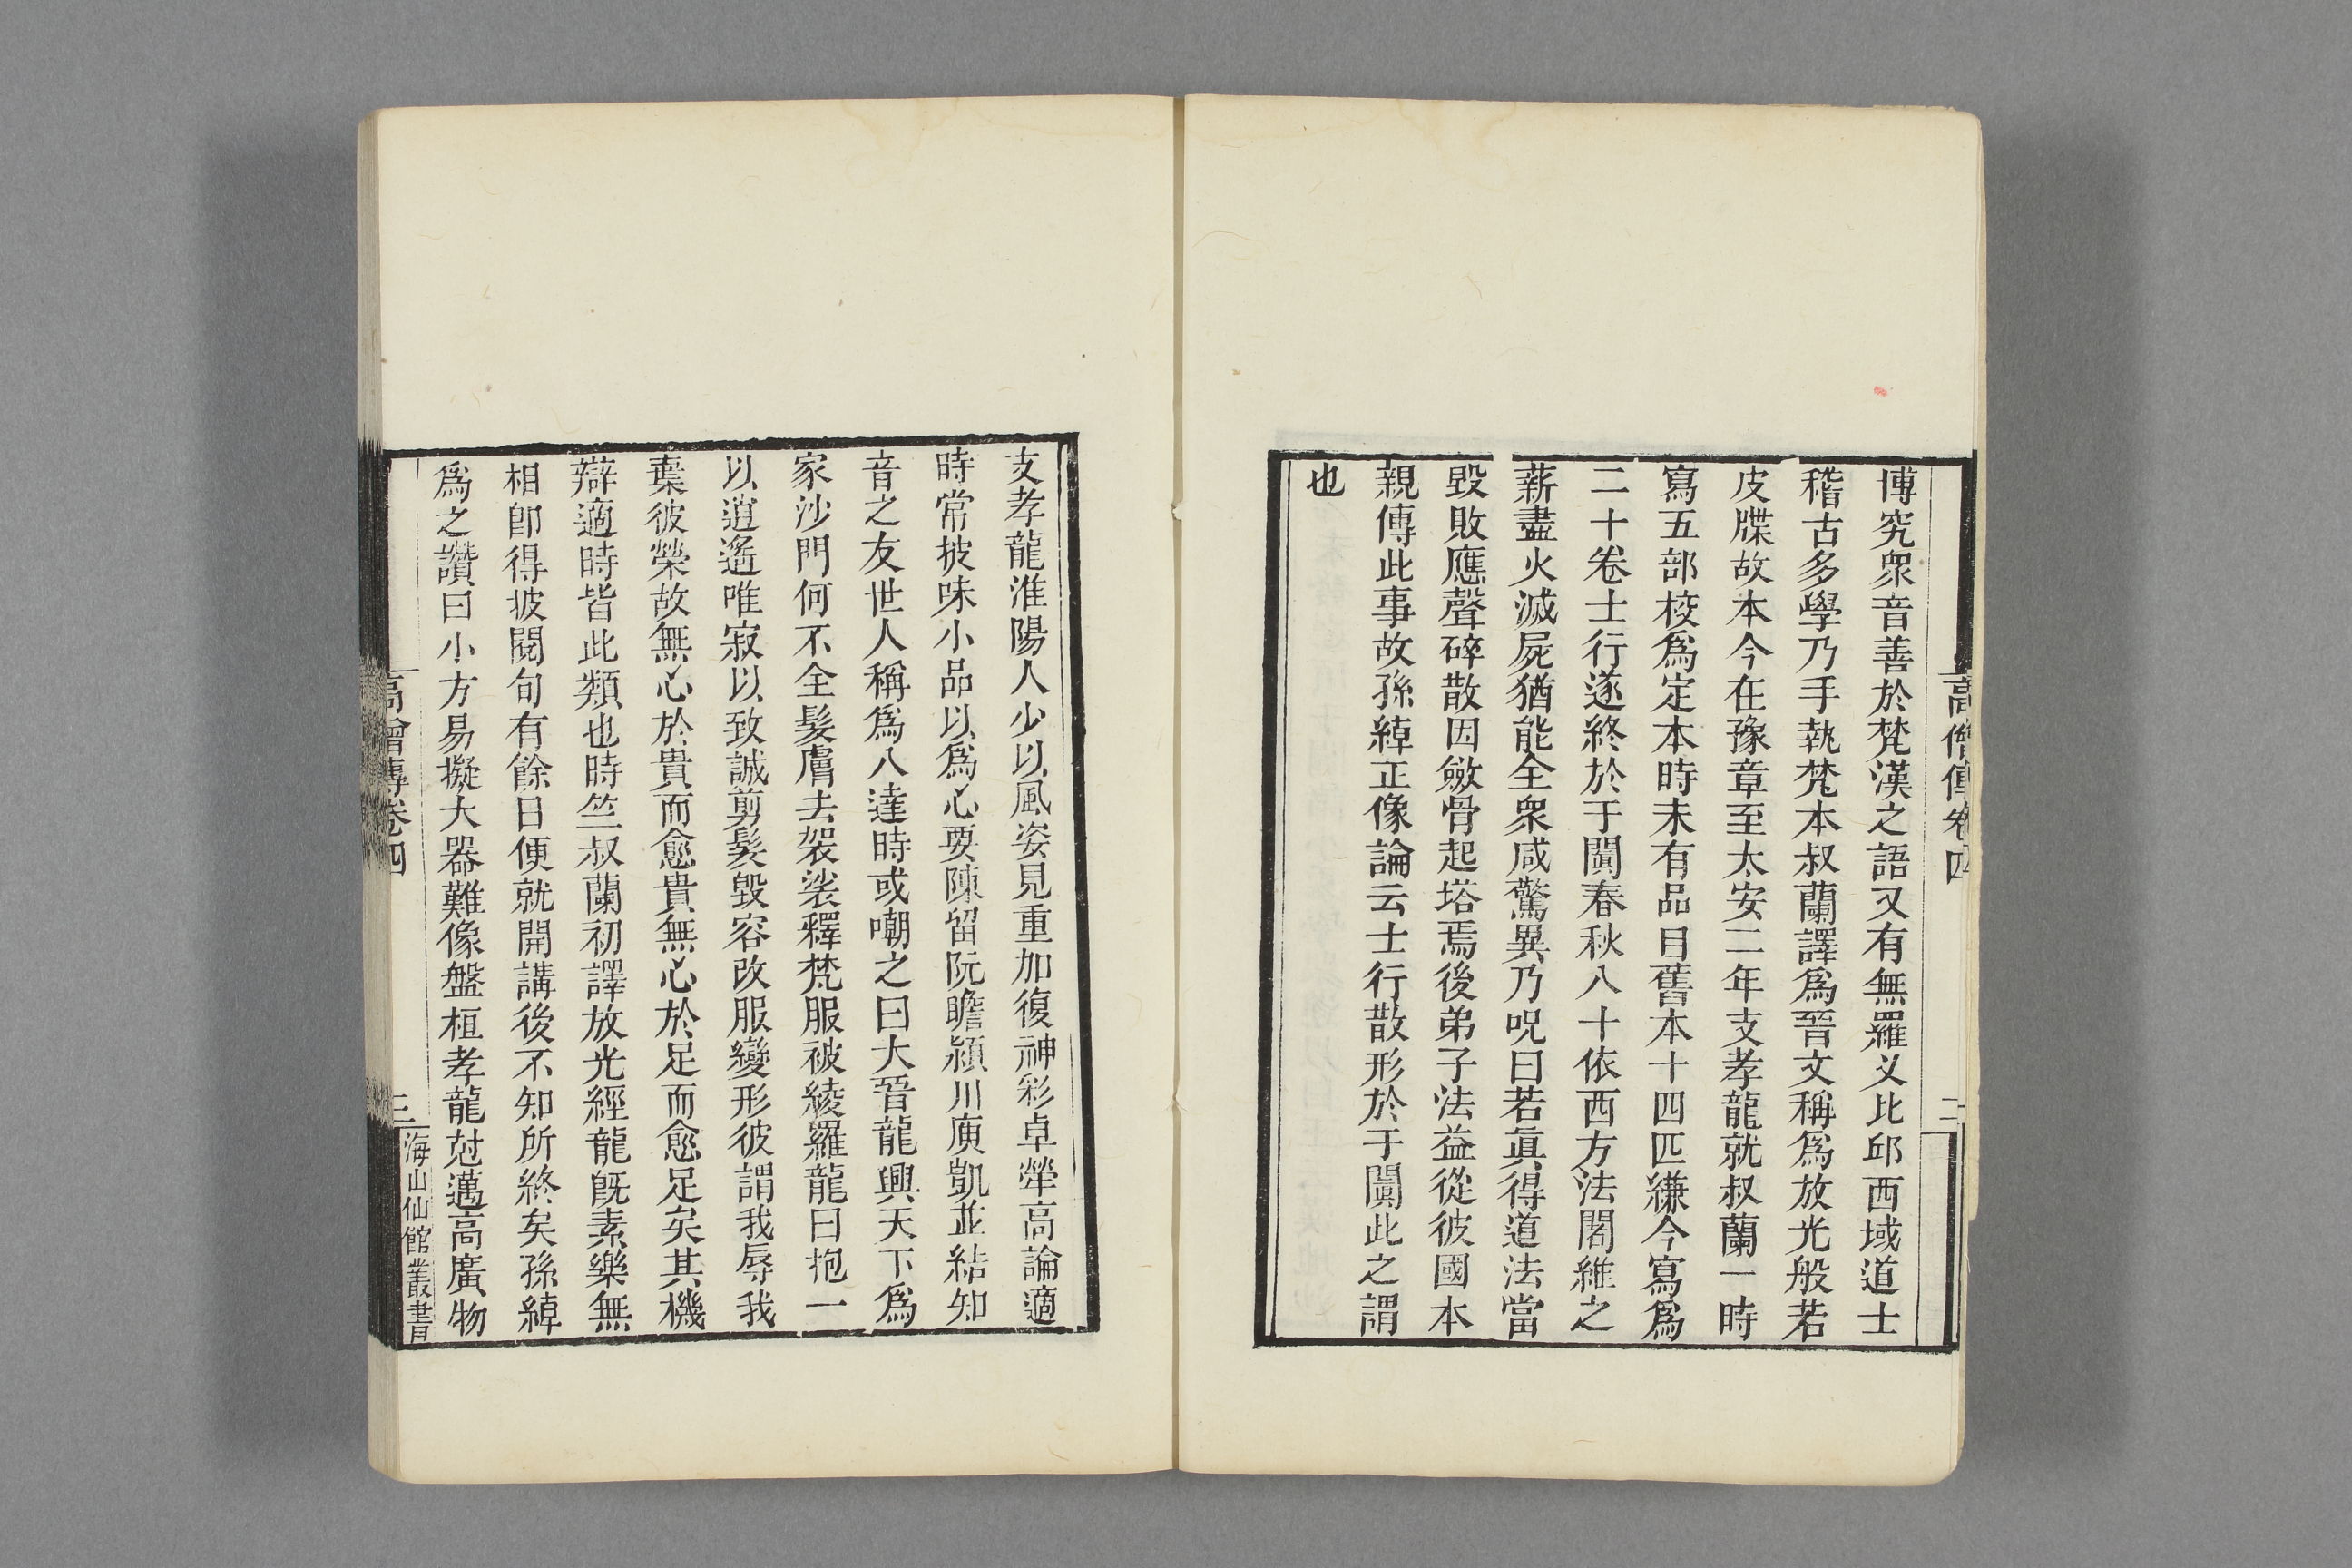 高僧傳卷四
二
博究眾音善於梵漢之語又有無羅叉比邱西域道士
稽古多學乃手執梵本叔蘭譯爲晉文稱爲放光般若
皮牒故本今在豫章至太安二年支孝龍就叔蘭一時
寫五部校爲定本時未有品目舊本十四匹縑今寫爲
二十卷士行遂終於于闐春秋八十依西方法闍維之
薪盡火滅屍猶能全眾咸驚異乃呪曰若眞得道法當
毀敗應聲碎散因斂骨起塔焉後弟子法益從彼國本
親傳此事故孫綽正像論云士行散形於于闐此之謂
也
支孝龍淮陽人少以風姿見重加復神彩卓犖高論適
時常披味小品以爲心要陳留阮瞻潁川庾凱並結知
音之友世人稱爲八達時或嘲之曰大晉龍興天下爲
家沙門何不全髮膚去袈裟釋梵服被綾羅龍曰抱一
以逍遙唯寂以致誠剪髮毀容改服變形彼謂我辱我
棄彼榮故無心於貴而愈貴無心於足而愈足矣其機
辯適時皆此類也時竺叔蘭初譯放光經龍既素樂無
相卽得披閱旬有餘日便就開講後不知所終矣孫綽
爲之讚曰小方易擬大器難像盤桓孝龍尅邁高廣物
高僧傳卷四
三
海山仙館叢書